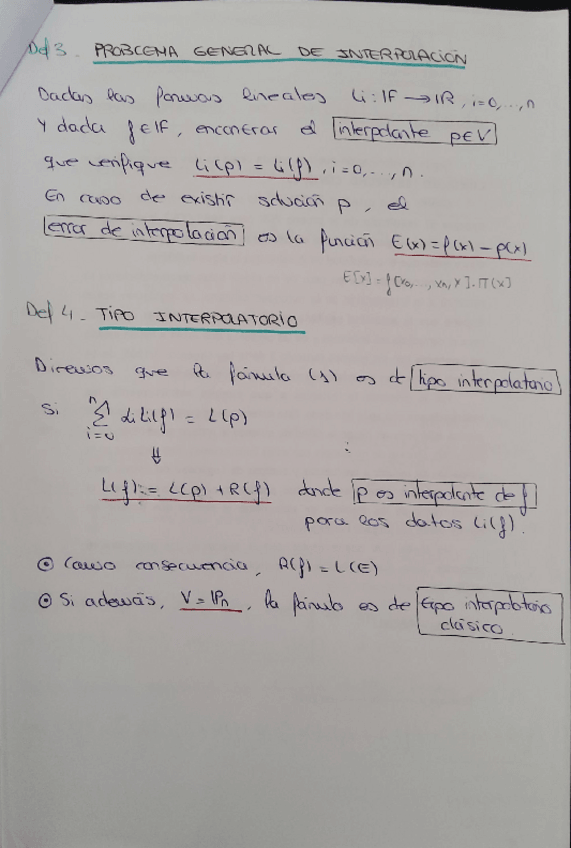 Def 3. PROBLEMA GENERAL DE INTERPOLACIÓN
Dadas las formas lineales Li: IF → IR, i=0,...,n
Y dada f∈IF, encontrar el interpolante p∈V
que verifique Li(p) = Li(f), i=0,...,n.
En caso de existir solución p, el
error de interpolación es la función E(x)=f(x)-p(x)
E[x] = f[x0,...,xn,x]·Π(x)
Def 4. TIPO INTERPOLATORIO
Diremos que la fórmula (1) es de tipo interpolatorio
Si n∑i=0 αiLi(f) = L(p)
⇓
L(f):= L(p) + R(f) donde p es interpolante de f
para los datos Li(f).
⊙ Como consecuencia, R(f) = L(E)
⊙ Si además, V = IPn, la fórmula es de tipo interpolatorio
clásico